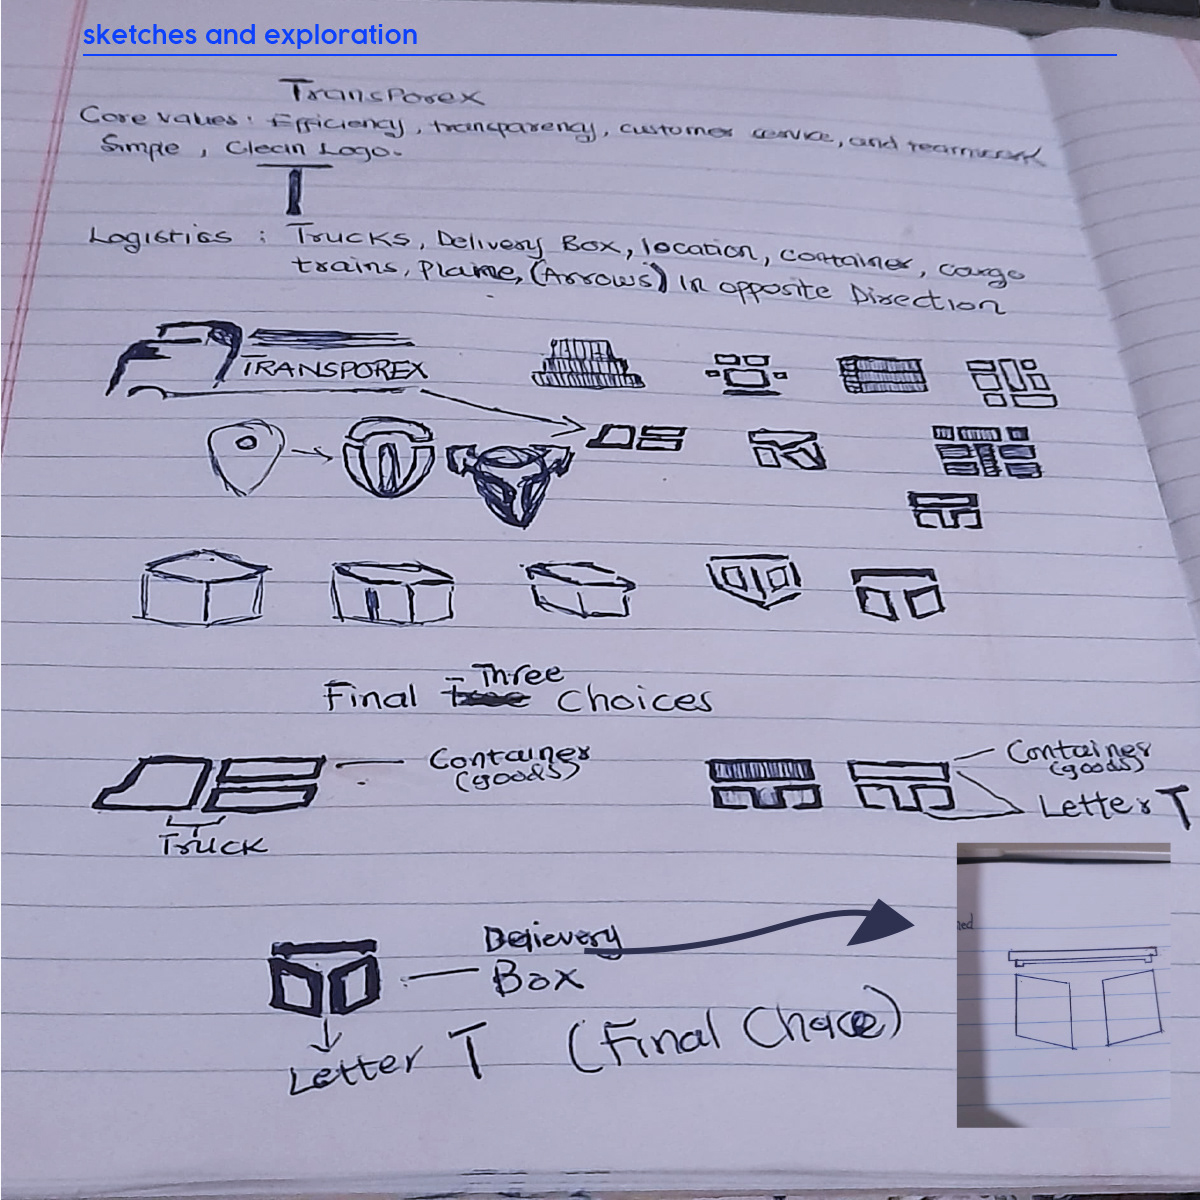 sketches and exploration
TransPorex
Core values: Efficiency, transparency, customer service, and teamwork
Simpe, Clean Logo.
T
Logistics : Trucks, Delivery Box, location, container, cargo
trains, Plane, (Arrows) In opposite Direction
TRANSPOREX
Final Three Choices
Container
(goods)
Truck
Container
(goods)
Letter T
Delievery
Box
Letter T (Final Choice)